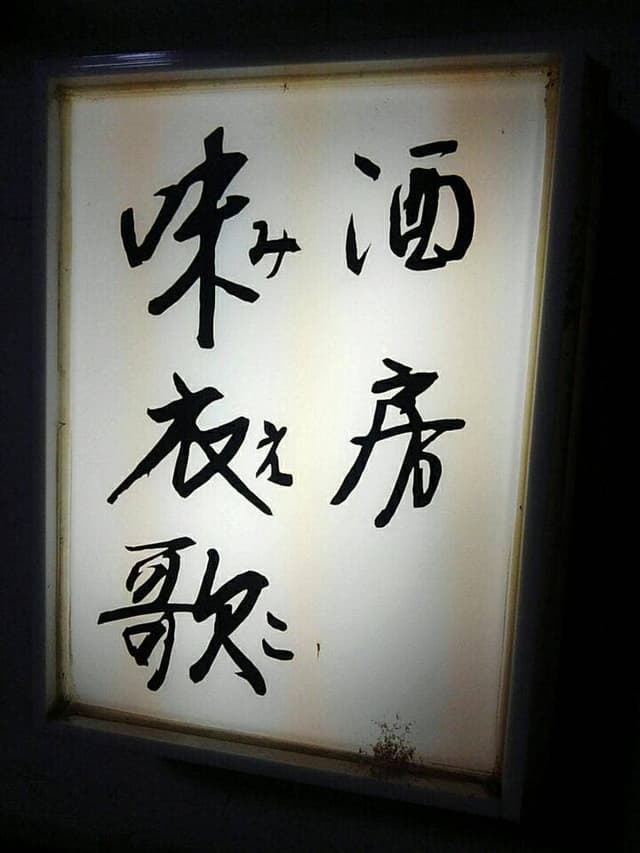 酒房
味衣歌
みえこ